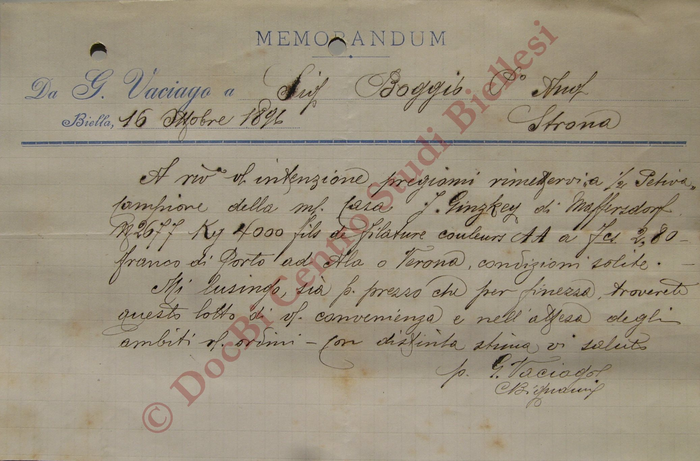 MEMORANDUM
Da G. Vaciago a Sig Boggio Do Amo
Biella, 16 Ottobre 1896 Strona
A rivo vs. intenzione pregiomi rimettervi a 1/2
campione della mf. Casa J. Ginzkey di Maffersdorf
No 2677 Kg 4000 fils de filature couleurs AA a Fcs 2,80
franco di Porto ad Ala o Verona, condizioni solite. -
Mi lusingo, sia p. prezzo che per finezza, troverete
questo lotto di vs. convenienza e nell'attesa degli
ambiti vs. ordini - con distinta stima vi saluto
p. G. Vaciago
© DocBi Centro Studi Biellesi